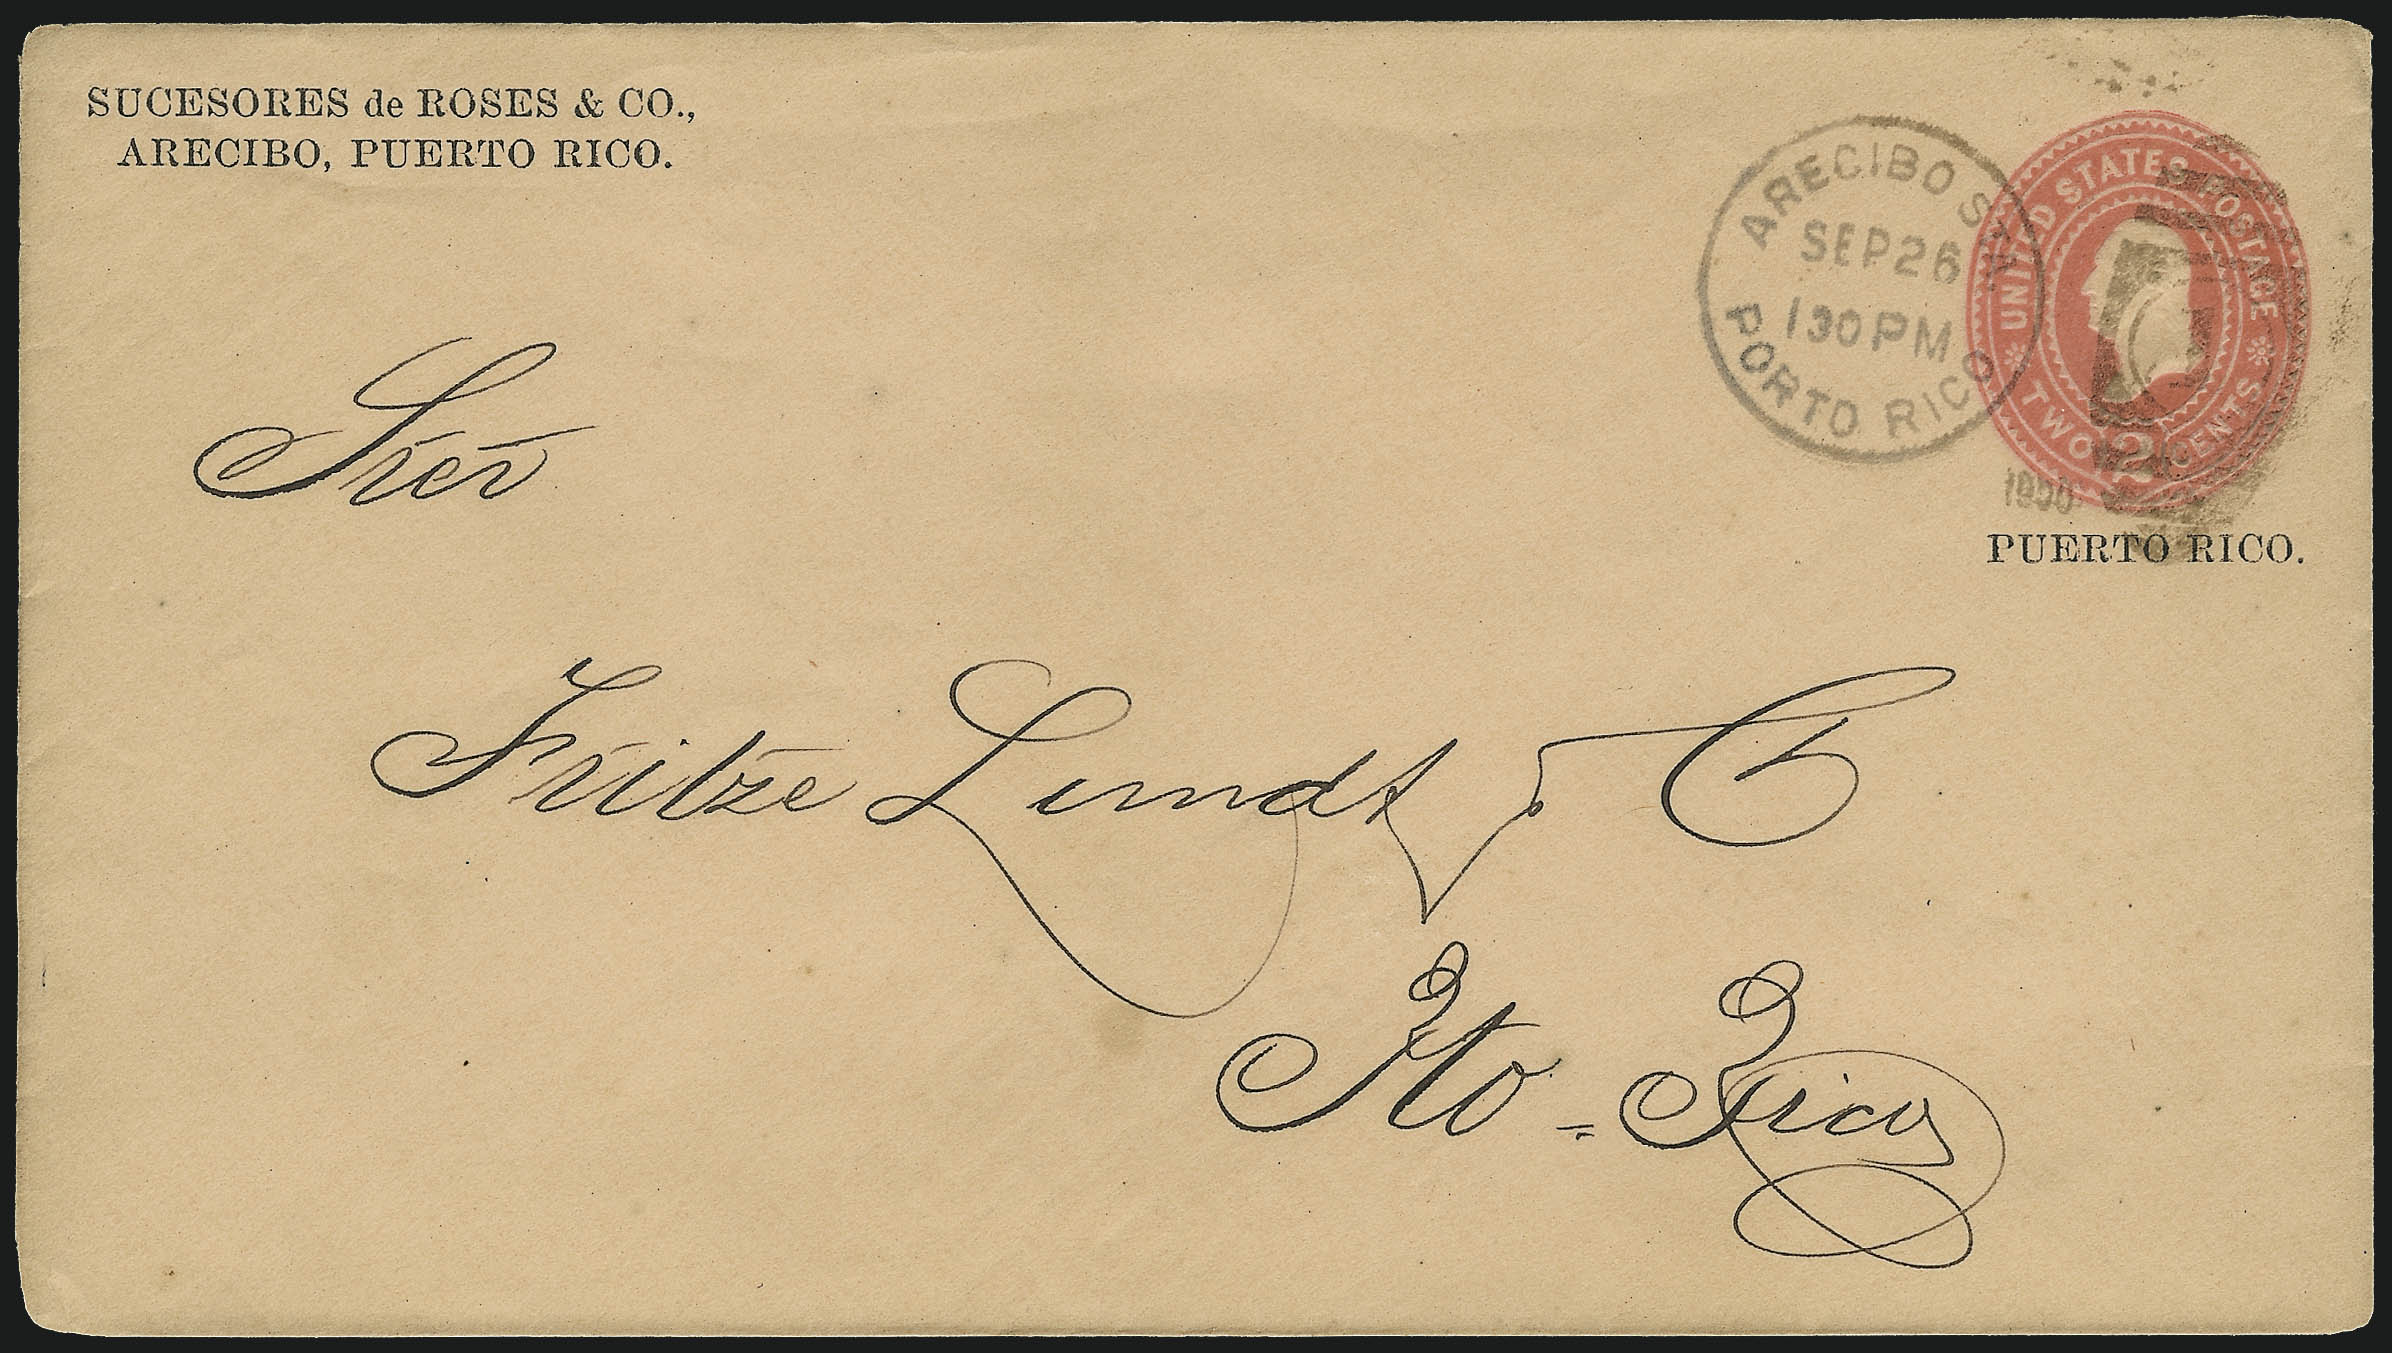 SUCESORES de ROSES & CO.,
ARECIBO, PUERTO RICO.
ARECIBO STA
SEP 26
130 PM
PORTO RICO
1900
UNITED STATES POSTAGE
TWO 2 CENTS
PUERTO RICO.
Sres
Fritze Lundt & C
Pto = Rico